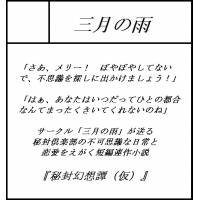 三月の雨
「さあ、メリー！　ぼやぼやしてない
で、不思議を探しに出かけましょう！」
「はぁ、あなたはいつだってひとの都合
なんてまったくきいてくれないのね」
サークル「三月の雨」が送る
秘封倶楽部の不可思議な日常と
恋愛をえがく短編連作小説
『秘封幻想譚（仮）』